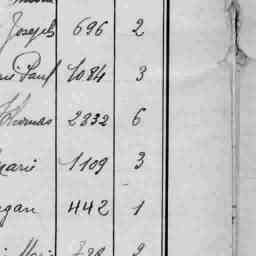 Joseph 696 2
Paul 1084 3
Thomas 2332 6
Marie 1109 3
442 1